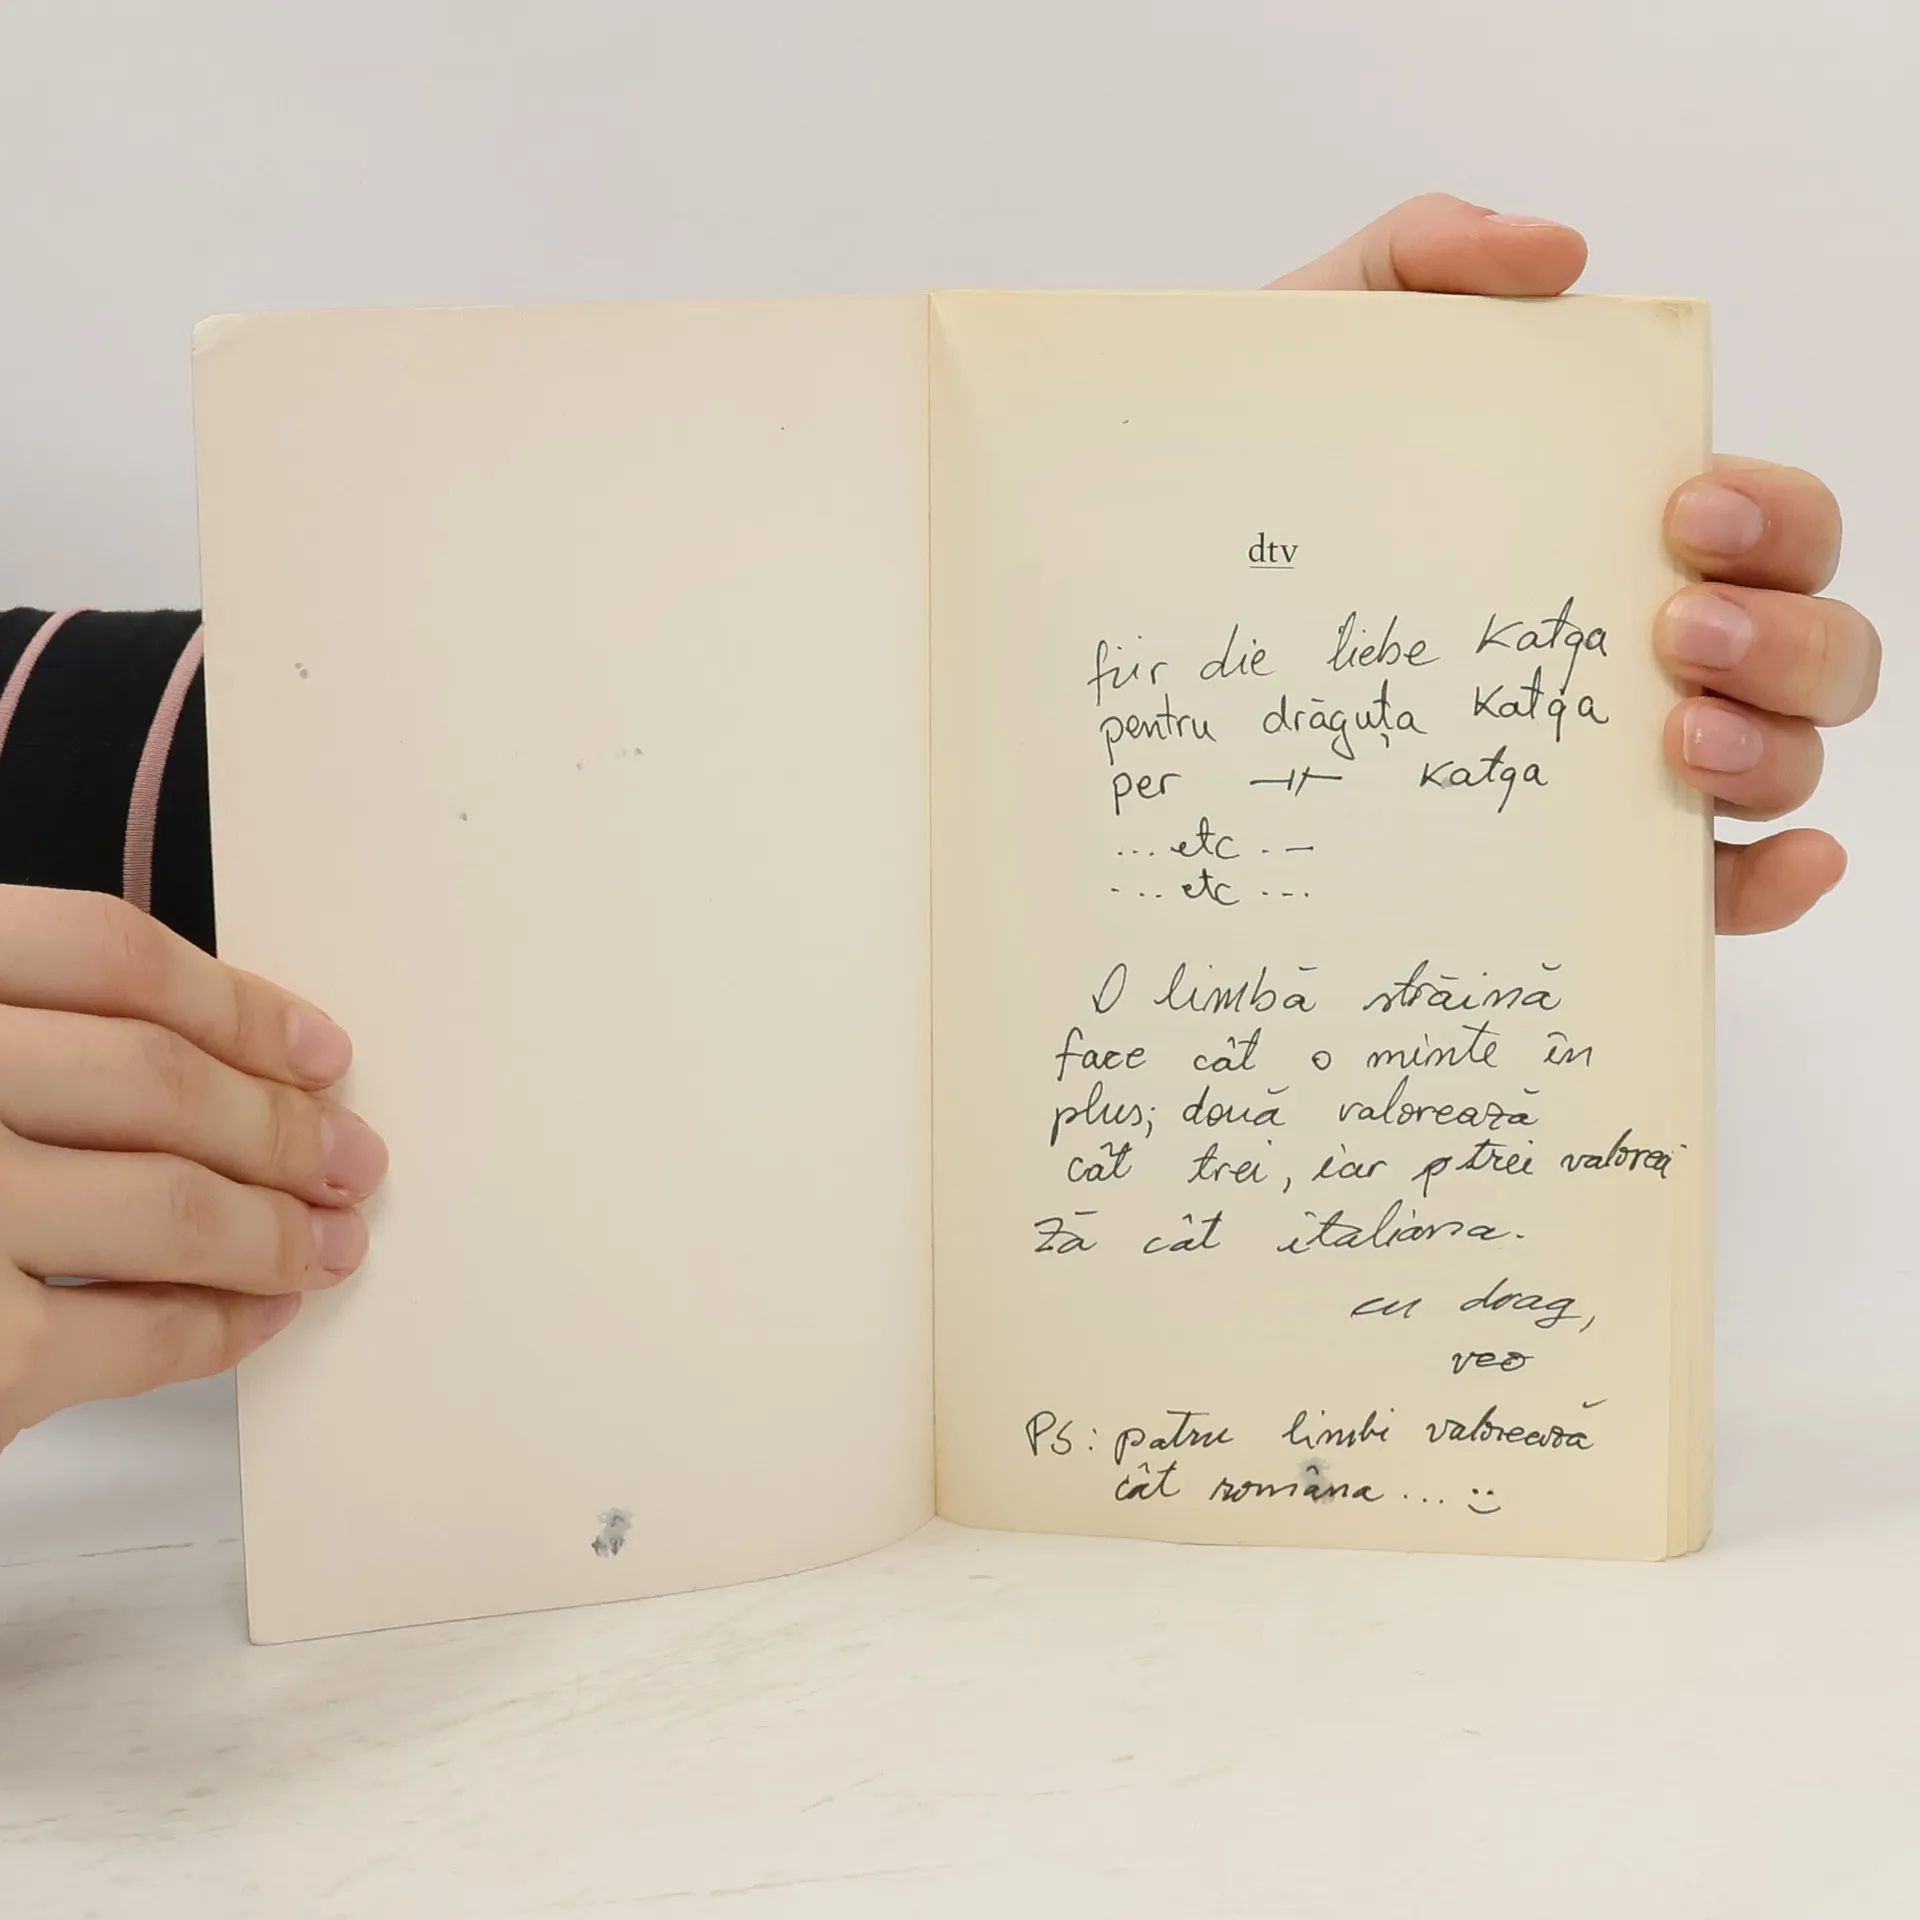 dtv
für die liebe Katja
pentru drăguța Katja
per —//— Katja
... etc . –
- ... etc ...
O limbă străină
face cât o minte în
plus; două valorează
cât trei, iar trei valorea
ză cât italiana.
cu drag,
veo
PS: patru limbi valorează
cât româna ... :)